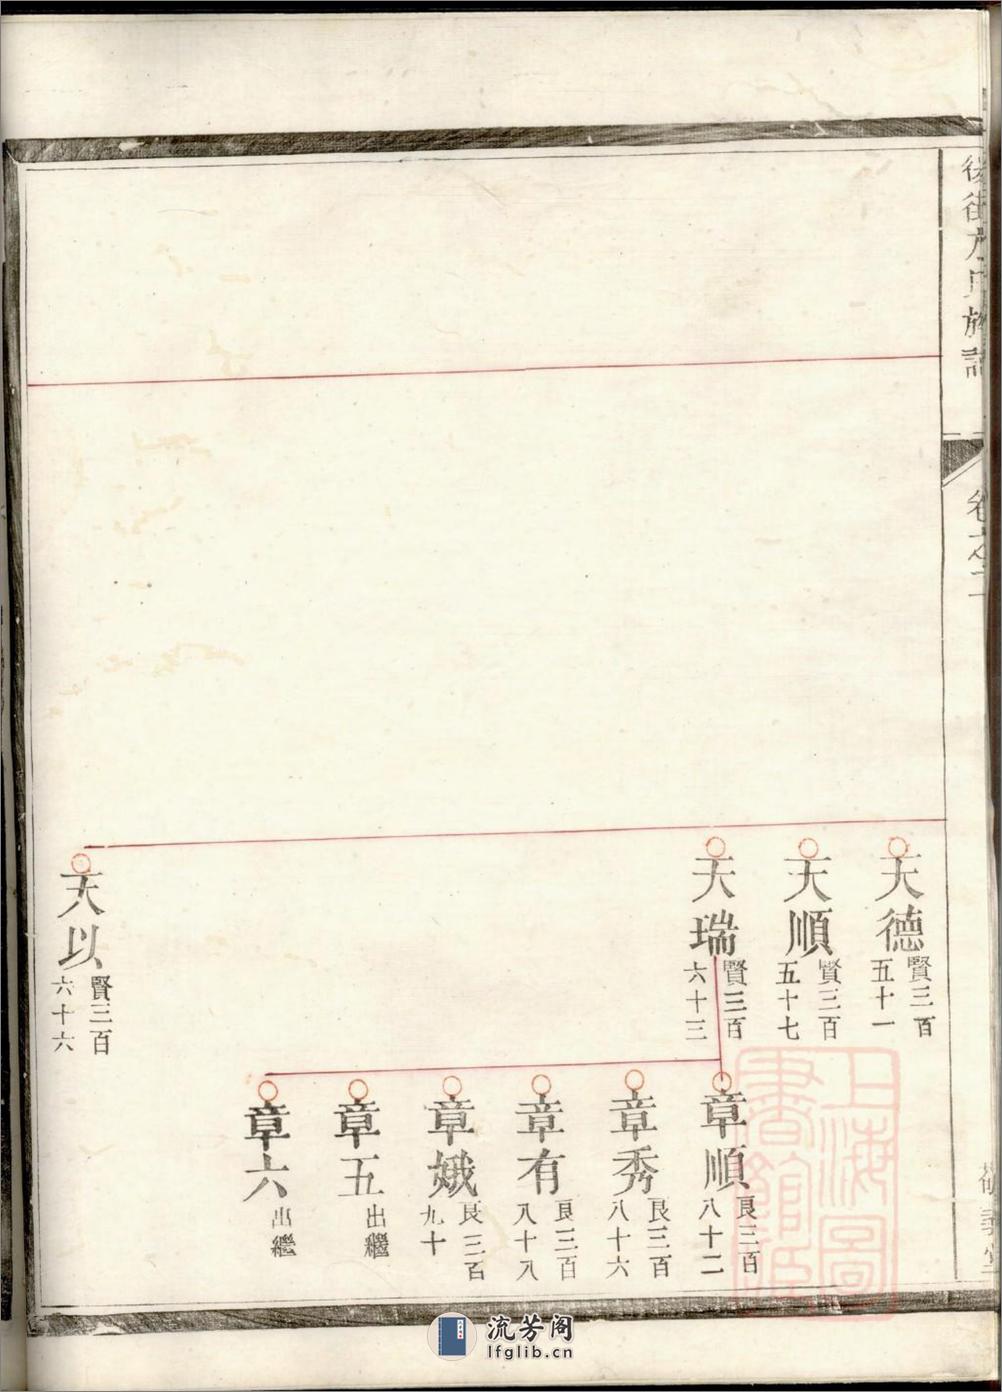 後街方氏族譜
卷之二
天德
賢三百
五十一
天順
賢三百
五十七
天瑞
賢三百
六十三
天以
賢三百
六十六
章順
良三百
八十二
章秀
良三百
八十六
章有
良三百
八十八
章娥
良三百
九十
章五
出繼
章六
出繼
上海圖
書館藏
流芳阁
lfglib.cn